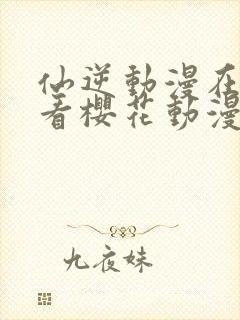 仙逆動漫在
着櫻花動漫
九夜妹